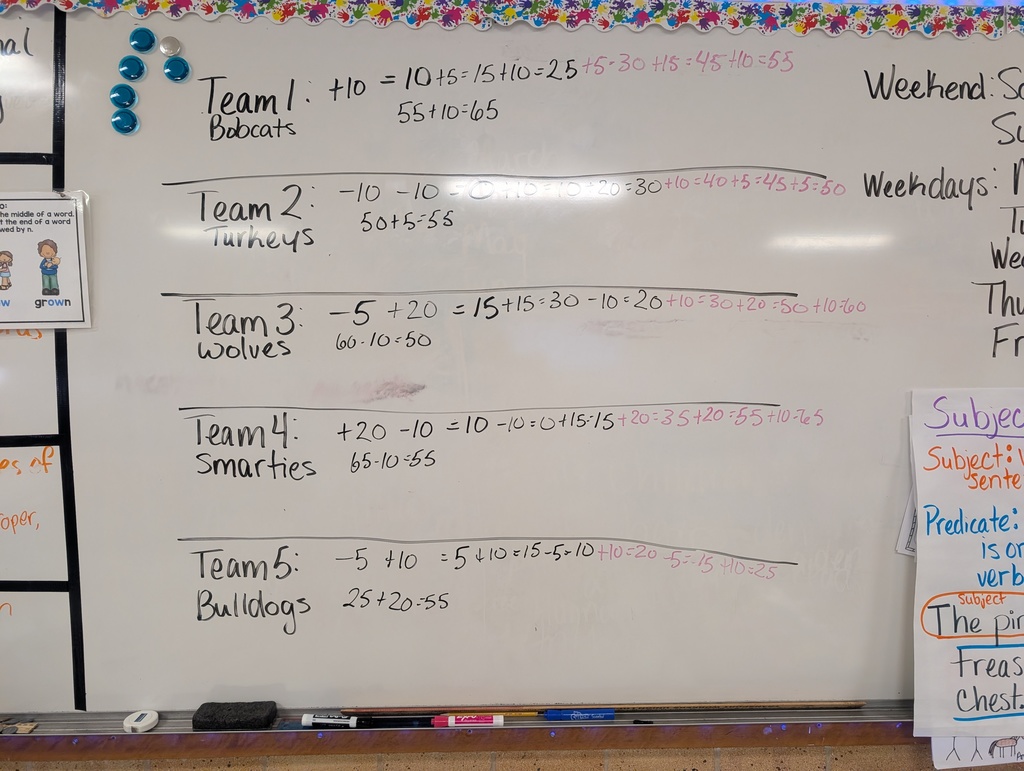 Team 1: +10 = 10+5=15+10=25+5=30+15=45+10=55
Bobcats 55+10=65
Team 2: -10 -10 +10=10+20=30+10=40+5=45+5=50
Turkeys 50+5=55
Team 3: -5 +20 = 15+15=30-10=20+10=30+20=50+10=60
Wolves 60-10=50
Team 4: +20 -10 =10-10=0+15=15+20=35+20=55+10=65
Smarties 65-10=55
Team 5: -5 +10 =5+10=15-5=10+10=20-5=15+10=25
Bulldogs 25+20=55
Weekend:
Weekdays:
he middle of a word.
t the end of a word
wed by n.
grown
es of
oper,
Subject:
sente
Predicate:
is
verb
Subject
The
Chest.